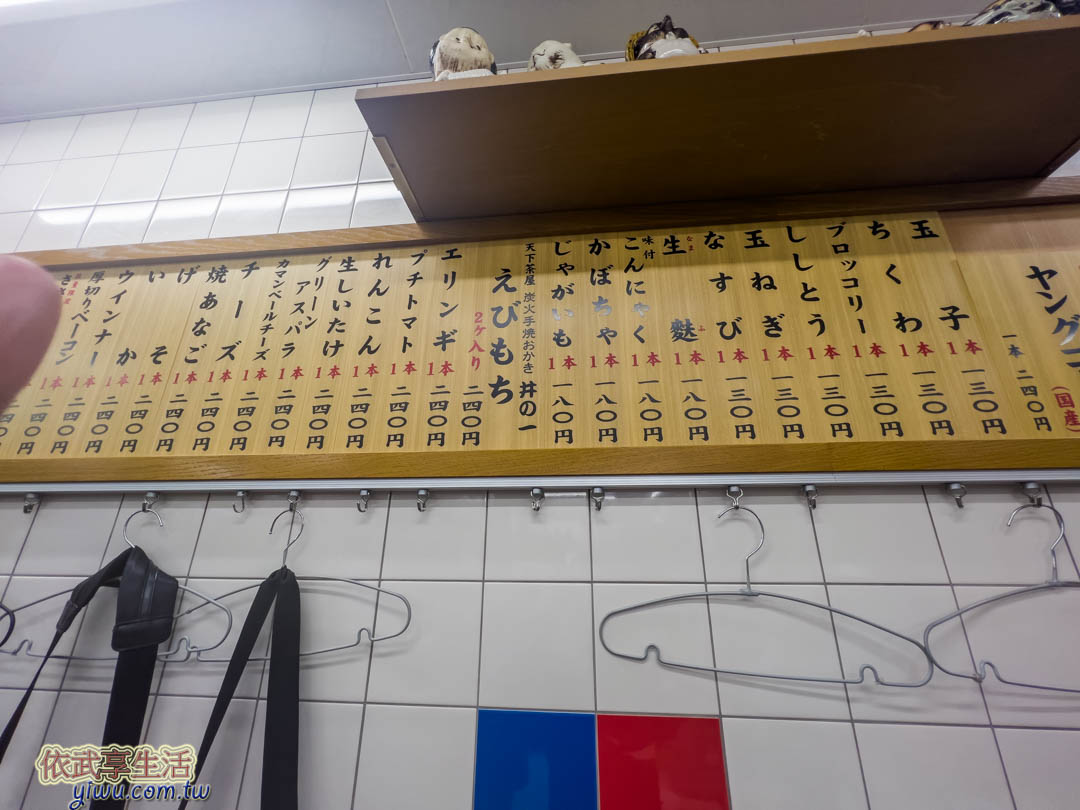 ヤング
一本 二四〇円
(国産)
玉子 1本 一三〇円
ちくわ 1本 一三〇円
ブロッコリー 1本 一三〇円
ししとう 1本 一三〇円
玉ねぎ 1本 一三〇円
なすび 1本 一三〇円
生麩 1本 一八〇円
なま ふ
味付こんにゃく 1本 一八〇円
かぼちゃ 1本 一八〇円
じゃがいも 1本 一八〇円
天下茶屋 炭火手焼おかき 丼の一
えびもち
2ケ入り 二四〇円
エリンギ 1本 二四〇円
プチトマト 1本 二四〇円
れんこん 1本 二四〇円
生しいたけ 1本 二四〇円
グリーンアスパラ 1本 二四〇円
カマンベールチーズ 1本 二四〇円
チーズ 1本 二四〇円
焼あなご 1本 二四〇円
げそ 1本 二四〇円
いか 1本 二四〇円
ウインナー 1本 二四〇円
厚切りベーコン 1本 二四〇円
依武享生活
yiwu.com.tw